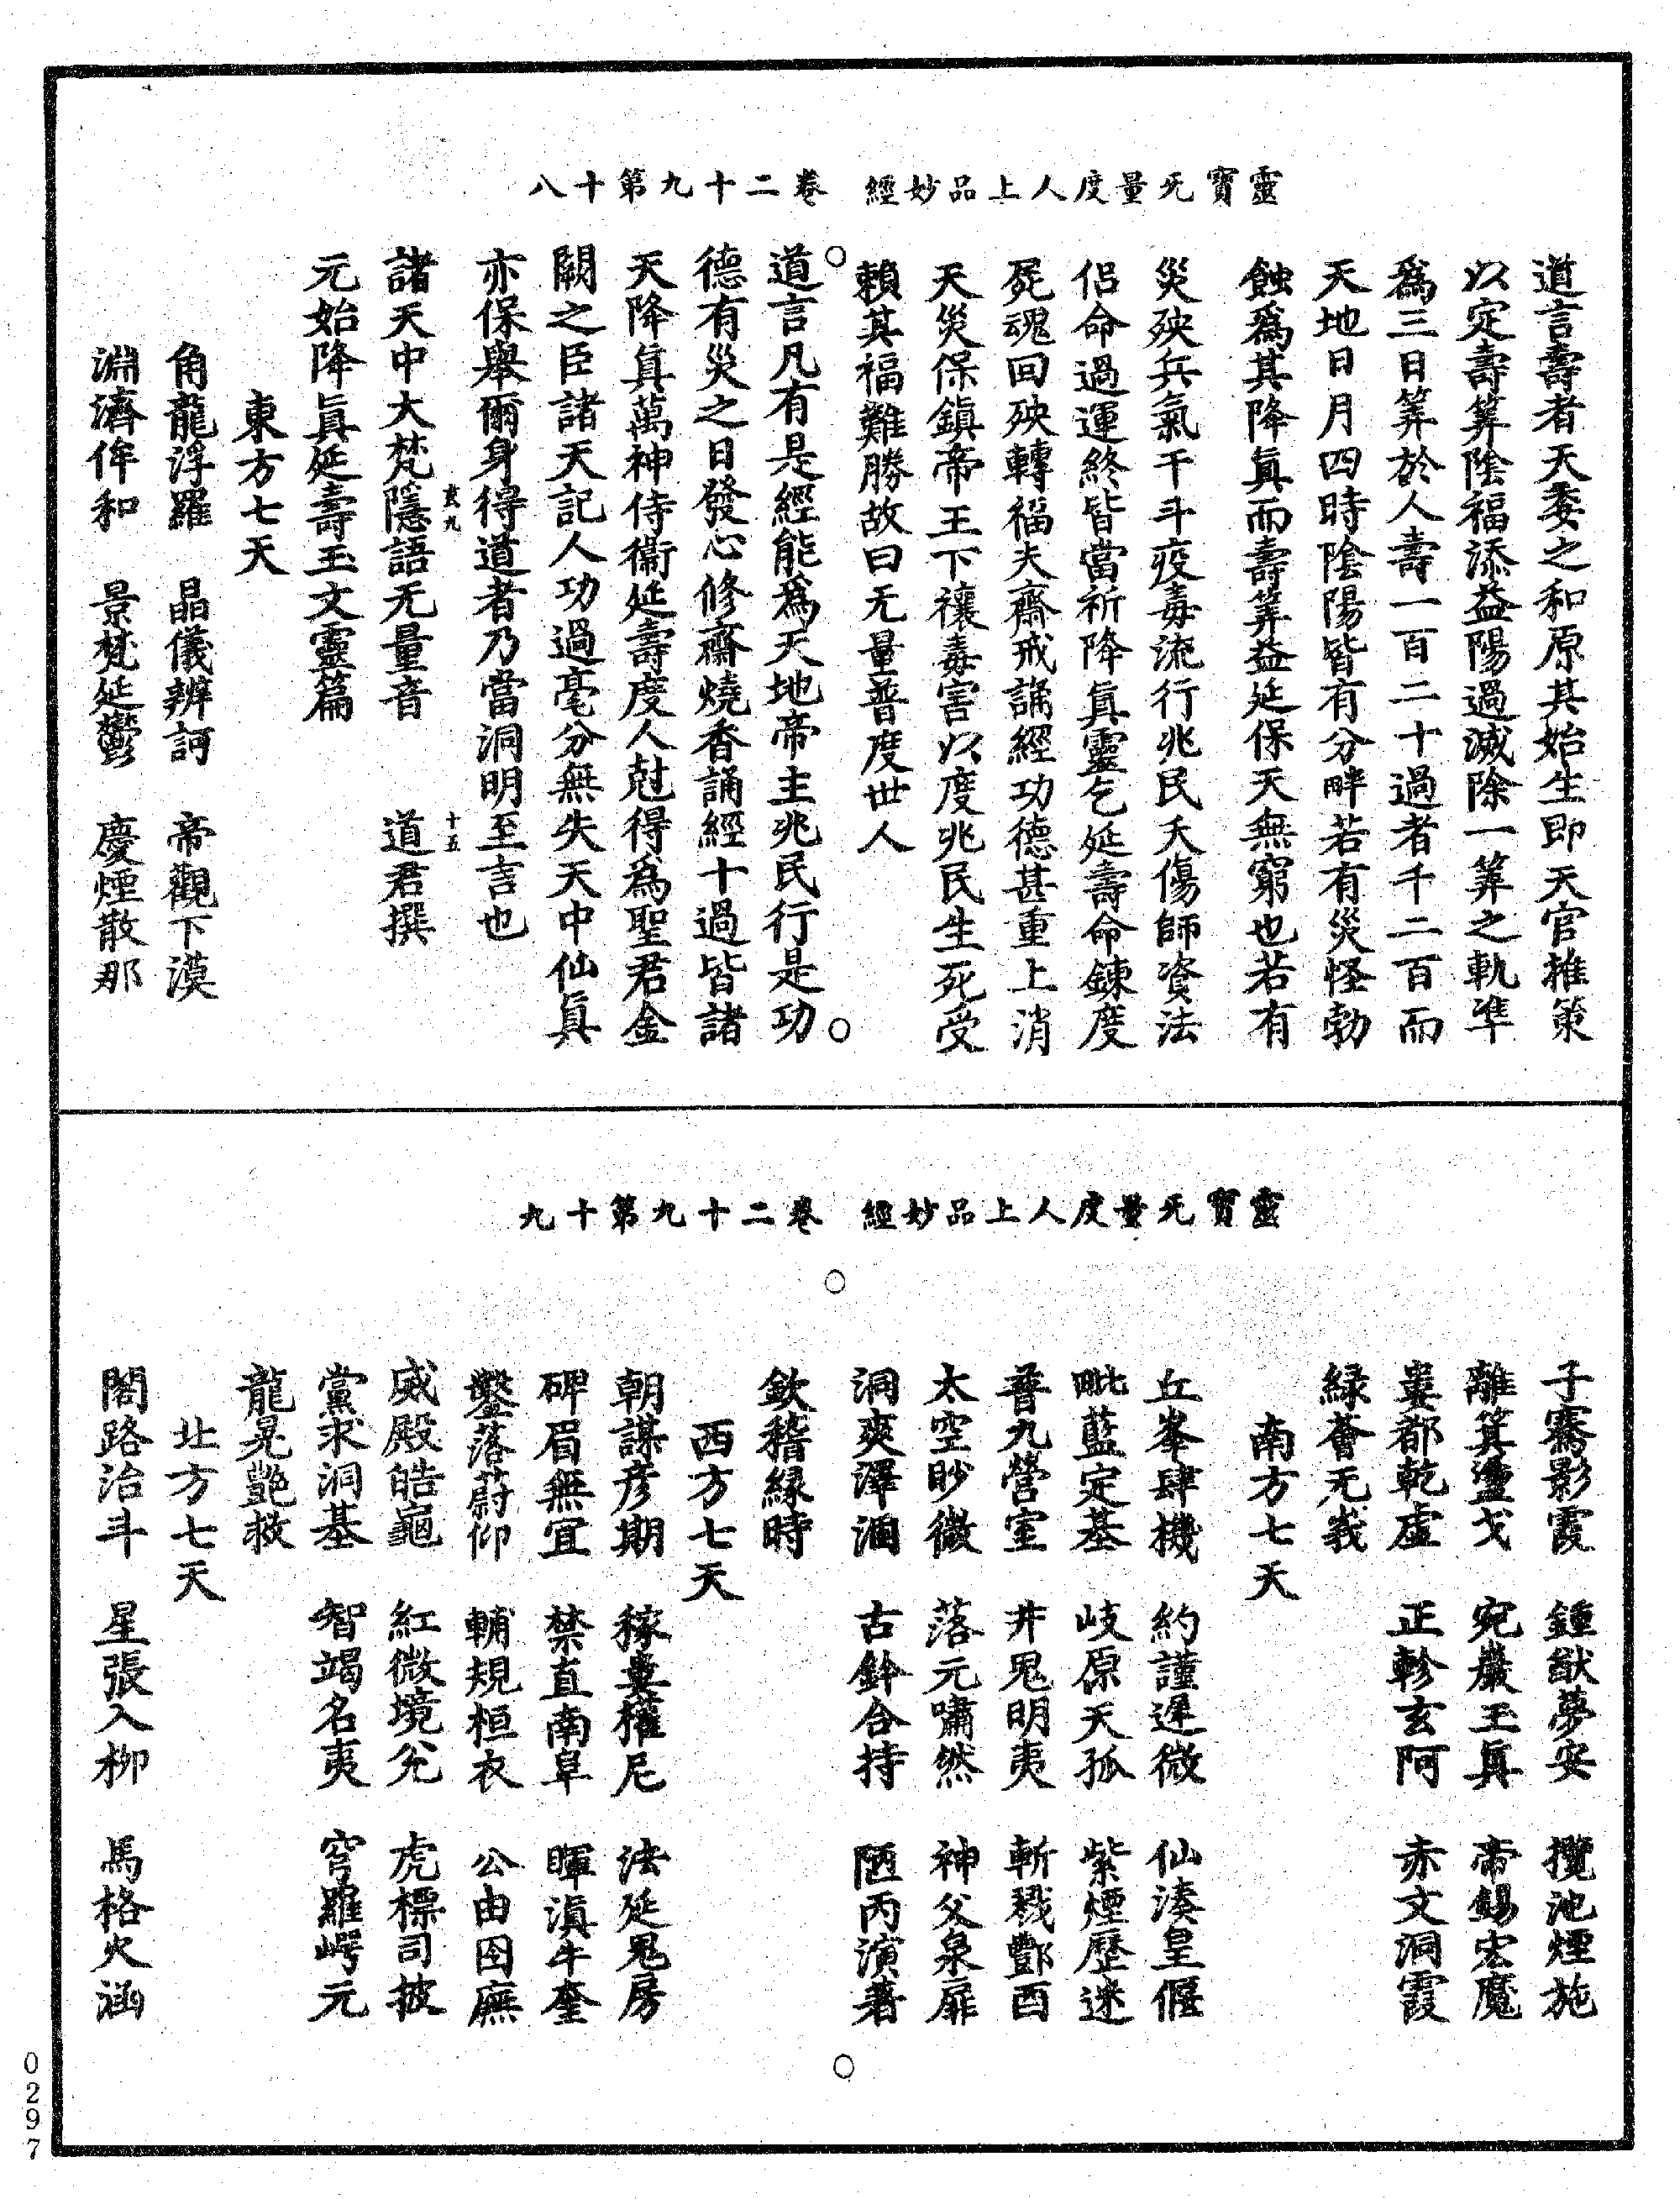 靈寶无量度人上品妙經　卷二十九第十八
道言壽者天委之和原其始生即天官推策
以定壽筭陰福添益陽過減除一筭之軌準
爲三日筭於人壽一百二十過者千二百而
天地日月四時陰陽皆有分畔若有災怪勃
蝕爲其降眞而壽筭益延保天無窮也若有
災殃兵氣干斗疫毒流行兆民夭傷師資法
侶命過運終皆當祈降眞靈乞延壽命鍊度
屍魂回殃轉福夫齋戒誦經功德甚重上消
天災保鎮帝王下禳毒害以度兆民生死受
賴其福難勝故曰无量普度世人
道言凡有是經能爲天地帝主兆民行是功
德有災之日發心修齋燒香誦經十過皆諸
天降眞萬神侍衞延壽度人尅得爲聖君金
闕之臣諸天記人功過毫分無失天中仙眞
亦保舉爾身得道者乃當洞明至言也
玄九　十五
諸天中大梵隱語无量音　道君撰
元始降眞延壽玉文靈篇
東方七天
角龍浮羅　晶儀辨訶　帝觀下漠
淵濟侔和　景梵延鬱　慶煙散那
靈寶无量度人上品妙經　卷二十九第十九
子騫影霞　鍾猷夢安　攬池煙施
離箕瀘戈　宛巖王眞　帝錫宏魔
婁都乾虛　正軫玄阿　赤文洞霞
緑薈无峩
南方七天
丘峯肆機　約謹遲微　仙湊皇偃
毗藍定基　岐原天孤　紫煙歷迷
普九營室　井鬼明夷　斬戮酆酉
太空眇微　落元嘯然　神父泉扉
洞爽澤湎　古鈐合持　陋丙演著
欽稽緣時
西方七天
朝謀彥期　稼婁權尼　法延鬼房
碑眉無冝　禁直南阜　暉滇牛奎
鑿落蔚仰　輔規桓衣　公由囹廡
威殿皓龜　紅微境兊　虎標司披
黨求洞基　智竭名夷　穹羅崿元
龍晃艷救
北方七天
閤路治斗　星張入柳　馬格火涵
0297